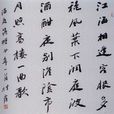 江海相逢客恨多
風葉下洞庭波
酒酣夜别淮陰市
月照高樓一曲歌